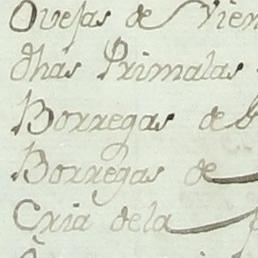 Ovejas de Vien
dhas Primalas
Borregas de
Borregas de
Cria dela